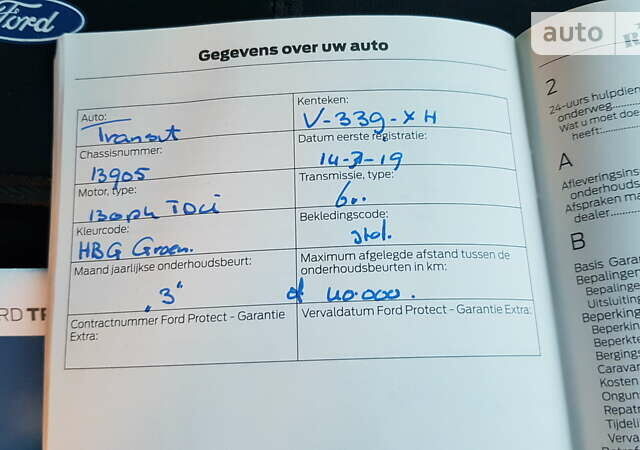 Ford
auto
Gegevens over uw auto
Auto:
Transit
Kenteken:
V-339-XH
Chassisnummer:
13905
Datum eerste registratie:
14-3-19
Motor, type:
130ph TDCi
Transmissie, type:
6v.
Kleurcode:
HBG Groen.
Bekledingscode:
stof.
Maand jaarlijkse onderhoudsbeurt:
"3" of
Maximum afgelegde afstand tussen de
onderhoudsbeurten in km:
40.000.
Contractnummer Ford Protect - Garantie
Extra:
Vervaldatum Ford Protect - Garantie Extra:
2
24-uurs hulpdien
onderweg
Wat u moet doe
heeft:
A
Afleveringsins
onderhouds
Afspraken ma
dealer
B
Basis Garan
Bepaling
Bepalinge
Uitsluiting
Beperking
Beperkin
Beperkte
Bergings
Caravan
Kosten
Ongun
Repatr
Tijdeli
Verva
RD TR